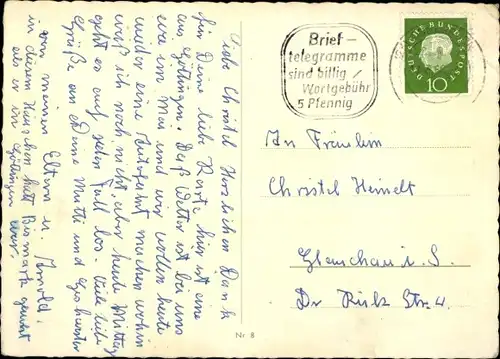 Liebe Christel Herzlichen Dank
für Deine liebe Karte, hier ist eine
aus Göttingen. Das Wetter ist bei uns
wir wollen heute
wieder eine machen wohin
weiß ich noch nicht, aber heute Mittag
geht es auf jeden Fall los. Viele liebe
Grüße an Deine Mutti und Geschwister
von meinen Eltern u. Arnold.
in diesem Häuschen hat Bismarck gewohnt
als er in Göttingen war.
Brief-
telegramme
sind billig
Wortgebühr
5 Pfennig
DEUTSCHE BUNDESPOST
10
An Fräulein
Christel Heinelt
Glauchau i. S.
Dr Rülz Str. 4.
Nr 8